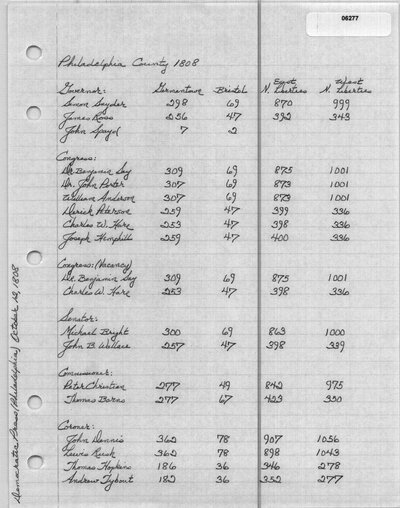 06277
Philadelphia County 1808
East West
Governor: Germantown Bristol N. Liberties N. Liberties
Simon Snyder 298 69 870 999
James Ross 256 47 392 343
John Spayd 7 2
Congress:
Dr. Benjamin Say 309 69 875 1001
Dr. John Porter 307 69 873 1001
William Anderson 307 69 873 1001
Derick Peterson 259 47 399 336
Charles W. Hare 253 47 398 336
Joseph Hemphill 259 47 400 336
Congress: (Vacancy)
Dr. Benjamin Say 309 69 875 1001
Charles W. Hare 253 47 398 336
Senator:
Michael Bright 300 69 863 1000
John B. Wallace 257 47 398 339
Commissioner:
Peter Christian 277 49 842 975
Thomas Barns 277 67 423 350
Coroner:
John Dennis 362 78 907 1056
Lewis Rush 362 78 898 1043
Thomas Hopkins 186 36 346 278
Andrew Tybout 182 36 352 277
Democratic Press (Philadelphia) October 12, 1808